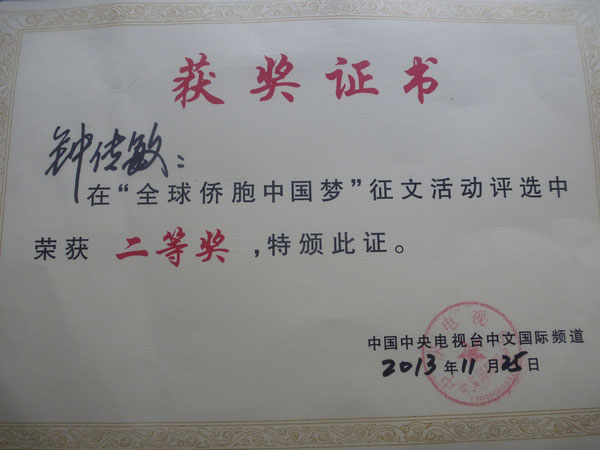 获奖证书
钟传敏：
在“全球侨胞中国梦”征文活动评选中
荣获 二等奖 ,特颁此证。
中国中央电视台中文国际频道
2013年11月25日